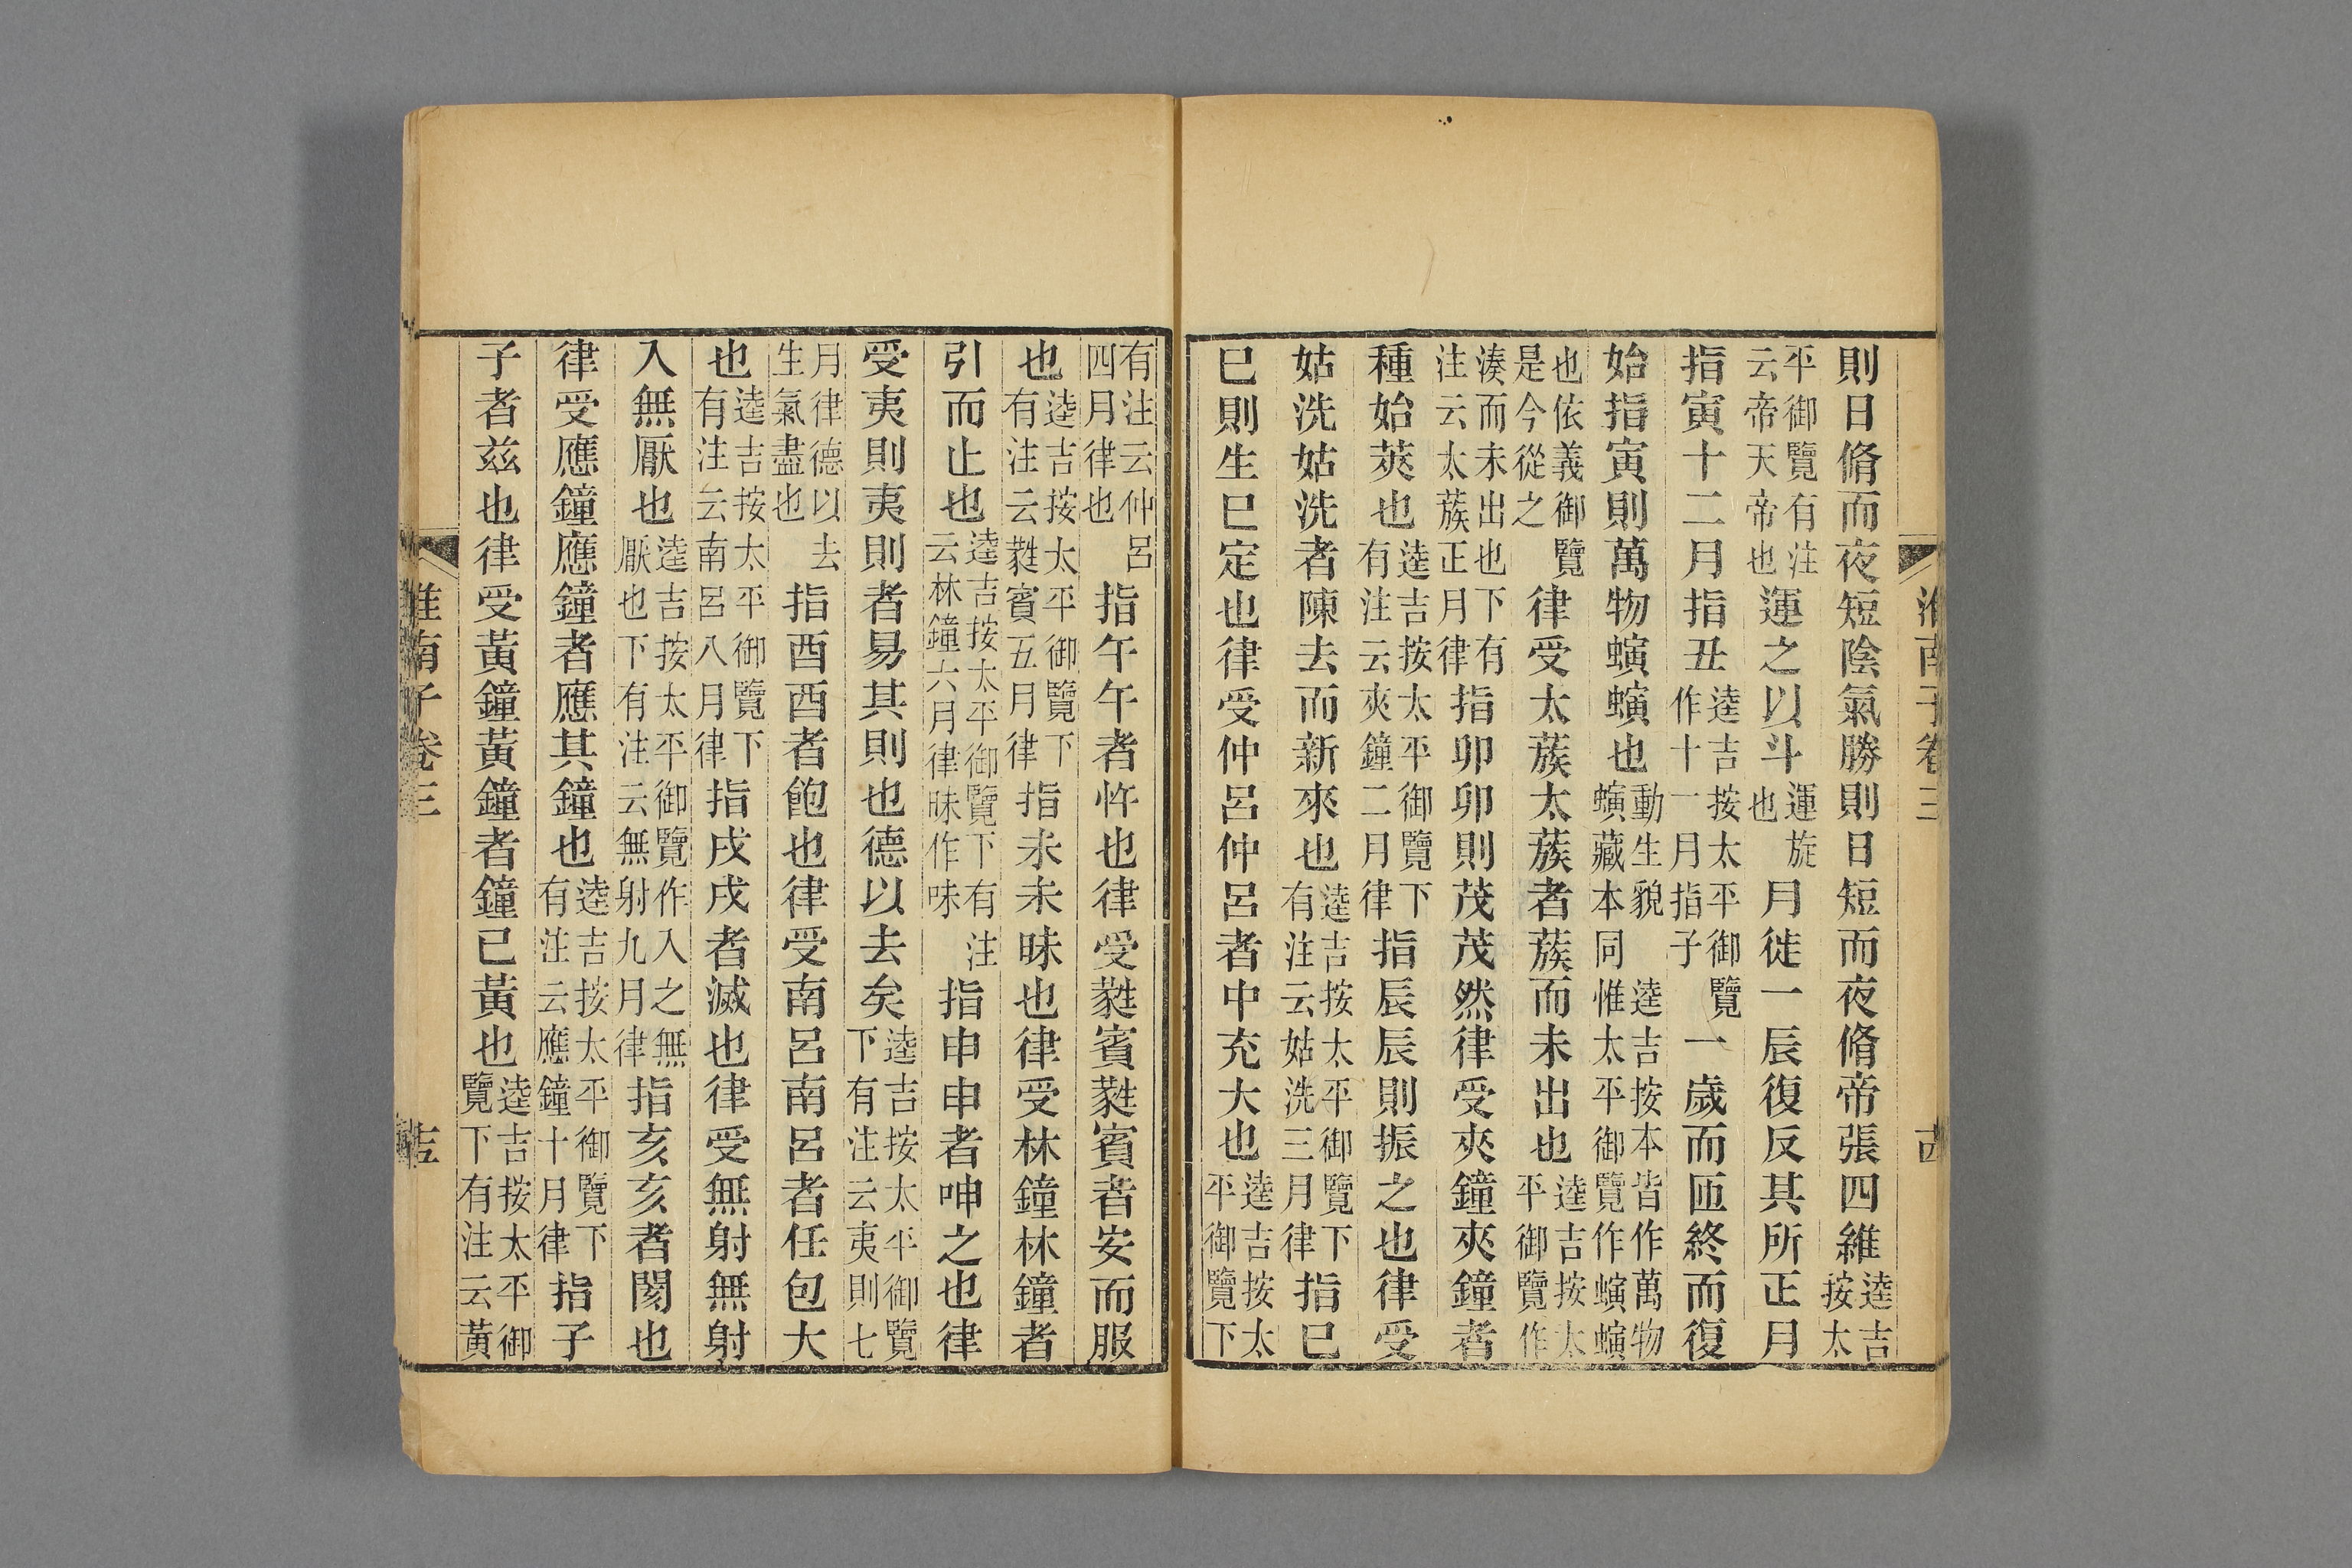 淮南子卷三
則日脩而夜短陰氣勝則日短而夜脩帝張四維逵吉按太
平御覽有注云帝天帝也運之以斗運旋也月徙一辰復反其所正月
指寅十二月指丑逵吉按太平御覽作十一月指子一歲而匝終而復
始指寅則萬物螾螾也動生貌 逵吉按本皆作萬物螾藏本同惟太平御覽作螾螾
也依義御覽是今從之律受太蔟太蔟者蔟而未出也逵吉按太平御覽作
湊而未出也下有注云太蔟正月律指卯卯則茂茂然律受夾鐘夾鐘者
種始莢也逵吉按太平御覽下有注云夾鐘二月律指辰辰則振之也律受
姑洗姑洗者陳去而新來也逵吉按太平御覽下有注云姑洗三月律指巳
巳則生巳定也律受仲呂仲呂者中充大也逵吉按太平御覽下
有注云仲呂四月律也指午午者忤也律受蕤賓蕤賓者安而服
也逵吉按太平御覽下有注云蕤賓五月律指未未昧也律受林鐘林鐘者
引而止也逵吉按太平御覽下有注云林鐘六月律昧作味指申申者呻之也律
受夷則夷則者易其則也德以去矣逵吉按太平御覽下有注云夷則七
月律德以去生氣盡也指酉酉者飽也律受南呂南呂者任包大
也逵吉按太平御覽下有注云南呂八月律指戌戌者滅也律受無射無射
入無厭也逵吉按太平御覽作入之無厭也下有注云無射九月律指亥亥者閡也
律受應鐘應鐘者應其鐘也逵吉按太平御覽下有注云應鐘十月律指子
子者茲也律受黃鐘黃鐘者鐘已黃也逵吉按太平御覽下有注云黃
淮南子卷三